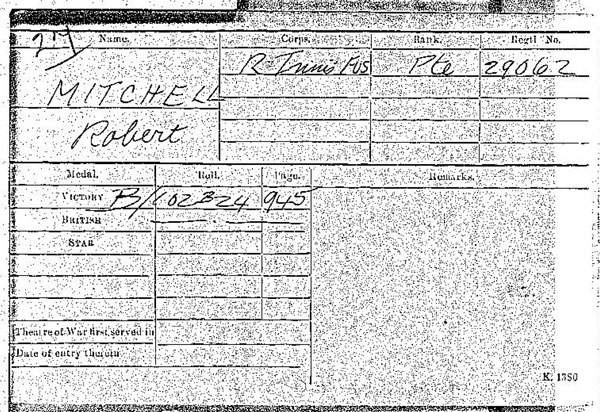 Name. Corps. Rank. Regtl No.
R Innis Fus Pte 29062
MITCHELL
Robert
Medal. Roll. Page. Remarks.
VICTORY B/102 B24 945
BRITISH
STAR
Theatre of War first served in
Date of entry therein
K. 1380